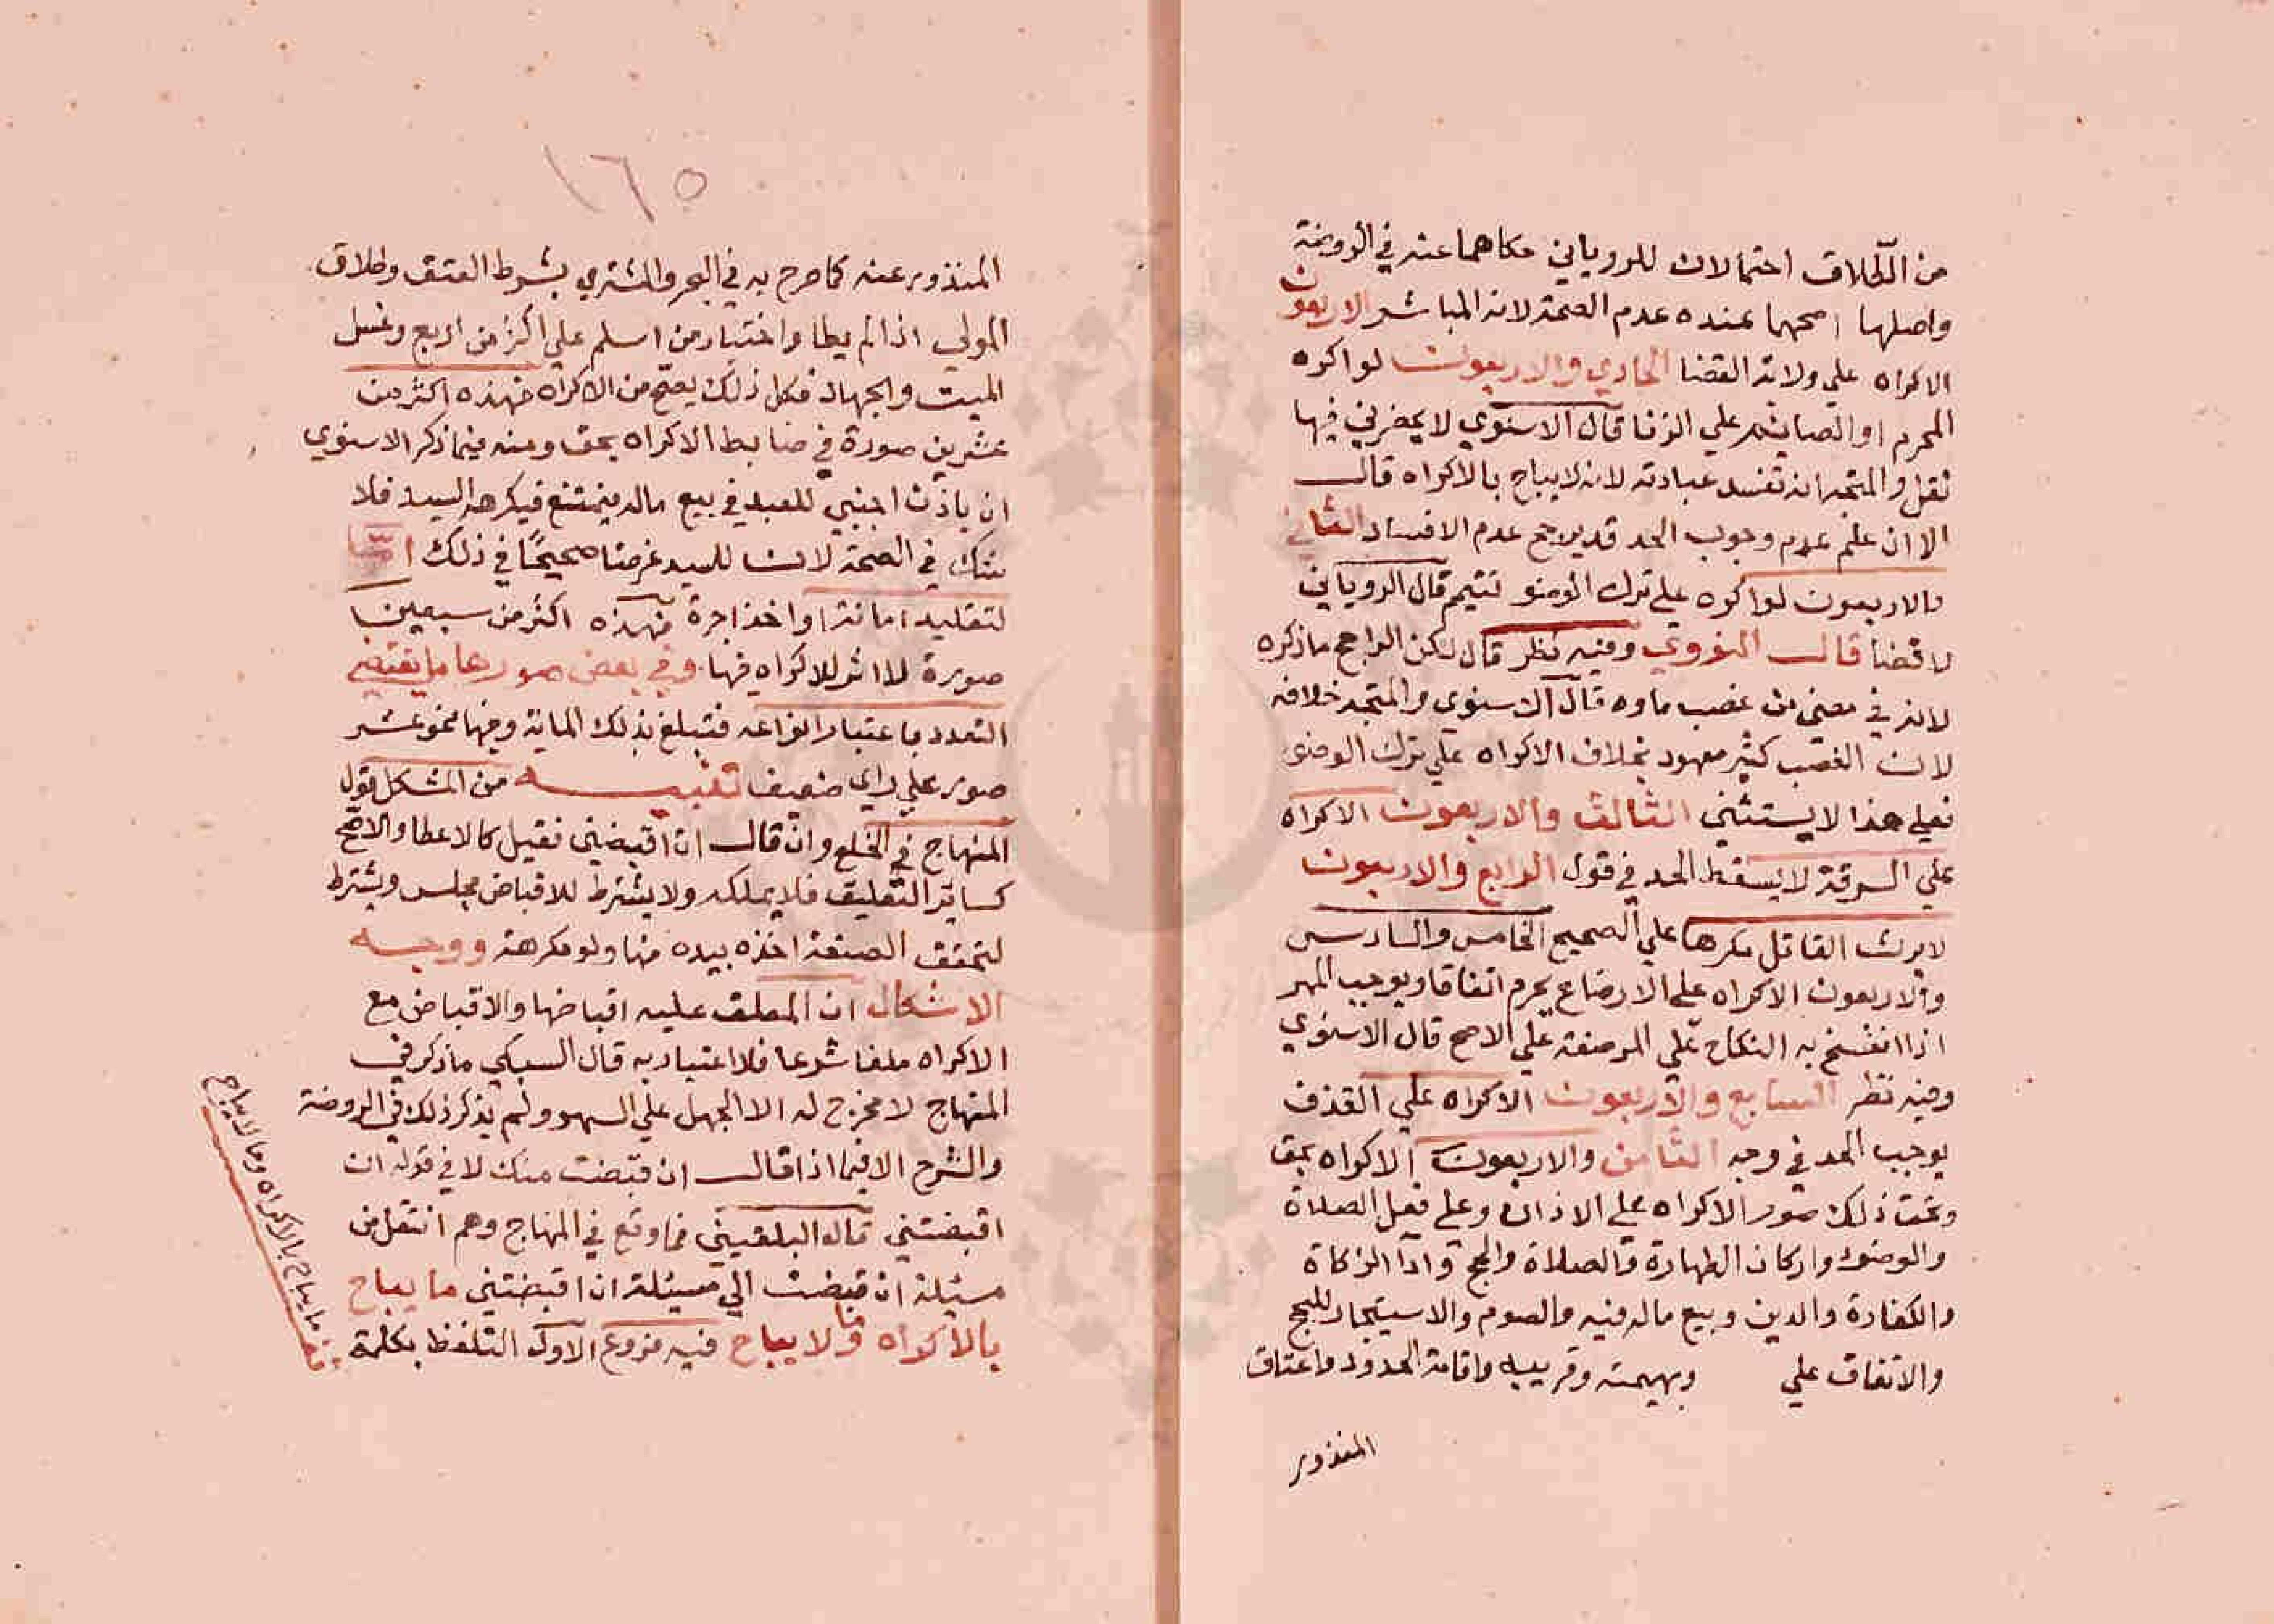 من الطلاق احتمالان للروياني حكاهما عنه في الروضة
واصلها اصحهما عنده عدم الصحة لانه المباشر الاربعون
الاكراه علي ولاية القضا الحادي والاربعون لو اكره
المحرم او الصايم علي الزنا قال الاسنوي لا يحضرني فيها
نقل والمتجه انه تفسد عبادته لانه لا يباح بالاكراه قال
الا ان علم عدم وجوب الحد قد يرجح عدم الافساد الثاني
والاربعون لو اكره علي ترك الوضو تتيمم قال الروياني
لا قضا قال النووي وفيه نظر قال لكن الراجح ما ذكره
لانه في معني من غصب ماوه قال الاسنوي والمتجه خلافه
لان الغصب كثير معهود بخلاف الاكراه علي ترك الوضوء
فعلي هذا لا يستثني الثالث والاربعون الاكراه
علي السرقة لا يسقط الحد في قول الرابع والاربعون
لا يرث القاتل مكرها علي الصحيح الخامس والسادس
والاربعون الاكراه علي الارضاع يحرم اتفاقا ويوجب المهر
اذا انفسخ به النكاح علي المرضعة علي الاصح قال الاسنوي
وفيه نظر السابع والاربعون الاكراه علي القذف
يوجب الحد في وجه الثامن والاربعون الاكراه بحق
وتحت ذلك صور الاكراه علي الاذان وعلي فعل الصلاة
والوضوء واركان الطهارة والصلاة والحج واداا الزكاة
والكفارة والدين وبيع ماله فيه والصوم والاستيجار للحج
والانفاق علي وبهيمته وقريبه واقامة الحدود واعتاق
المنذور
١٦٥
المنذور عنه كما صرح به في البحر والمشتري بشرط العتق وطلاق
المولي اذا لم يطا واختيار من اسلم علي اكثر من اربع وغسل
الميت والجهاد فكل ذلك يصح من الاكراه فهذه اكثر من
عشرين صورة في ضابط الاكراه بحق ومنه فيما ذكر الاسنوي
ان ياذن اجنبي للعبد في بيع ماله فيمتنع فيكرهه السيد فلا
شك في الصحة لان للسيد غرضا صحيحا في ذلك اما
لتقليد امانة او اخذ اجرة فهذه اكثر من سبعين
صورة لا اثر للاكراه فيها وفي بعض صورها ما يقتضي
التعدد باعتبار انواعه فتبلغ بذلك الماية وفيها نحو عشر
صور علي راي ضعيف تنبيه من المشكل قول
المنهاج في الخلع وان قال ان اقبضتني فقيل كالاعطا والاصح
كساير التعليق فلا يملكه ولا يشترط للاقباض مجلس ويشترط
لتحقق الصفة اخذه بيده منها ولو مكرهة ووجه
الاشكال ان المعلق عليه اقباضها والاقباض مع
الاكراه ملغا شرعا فلا اعتبار به قال السبكي ما ذكر في
المنهاج لا مخرج له الا الجهل علي السهو ولم يذكر ذلك في الروضة
والشرح الا فيما اذا قال ان قبضت منك لا في قوله ان
اقبضتني قاله البلقيني فما وقع في المنهاج وهم انتقل من
مسئلة ان قبضت الي مسئلة ان اقبضتني ما يباح
بالاكراه وما لا يباح فيه فروع الاول التلفظ بكلمة
قف ما يباح بالاكراه وما لا يباح